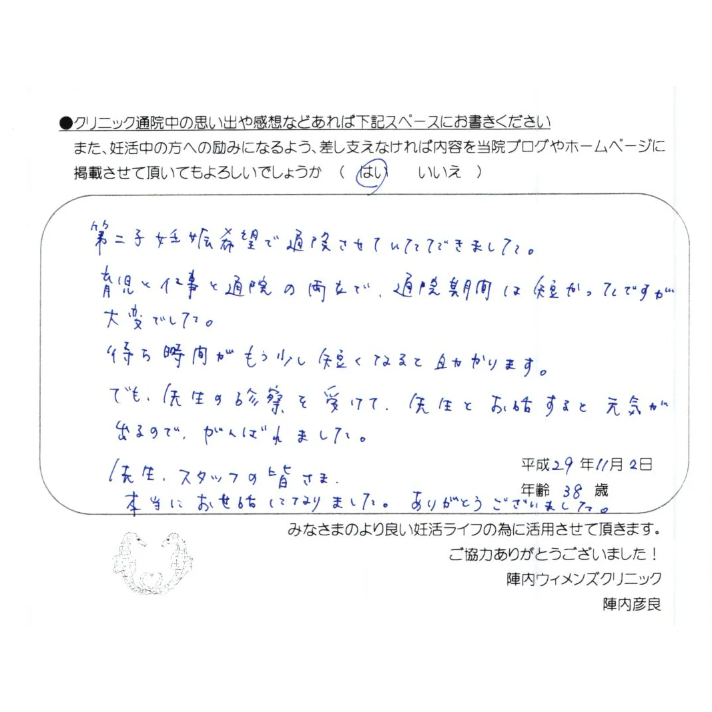 ●クリニック通院中の思い出や感想などあれば下記スペースにお書きください
また、妊活中の方への励みになるよう、差し支えなければ内容を当院ブログやホームページに
掲載させて頂いてもよろしいでしょうか （ はい いいえ ）
第二子妊娠希望で通院させていただきました。
育児と仕事と通院の両立で、通院期間は短かったですが
大変でした。
待ち時間がもう少し短くなると助かります。
でも、先生の診察を受けて、先生とお話すると元気が
出るので、がんばれました。
先生、スタッフの皆さま、
本当にお世話になりました。ありがとうございました。
平成29年11月2日
年齢 38 歳
みなさまのより良い妊活ライフの為に活用させて頂きます。
ご協力ありがとうございました！
陣内ウィメンズクリニック
陣内彦良